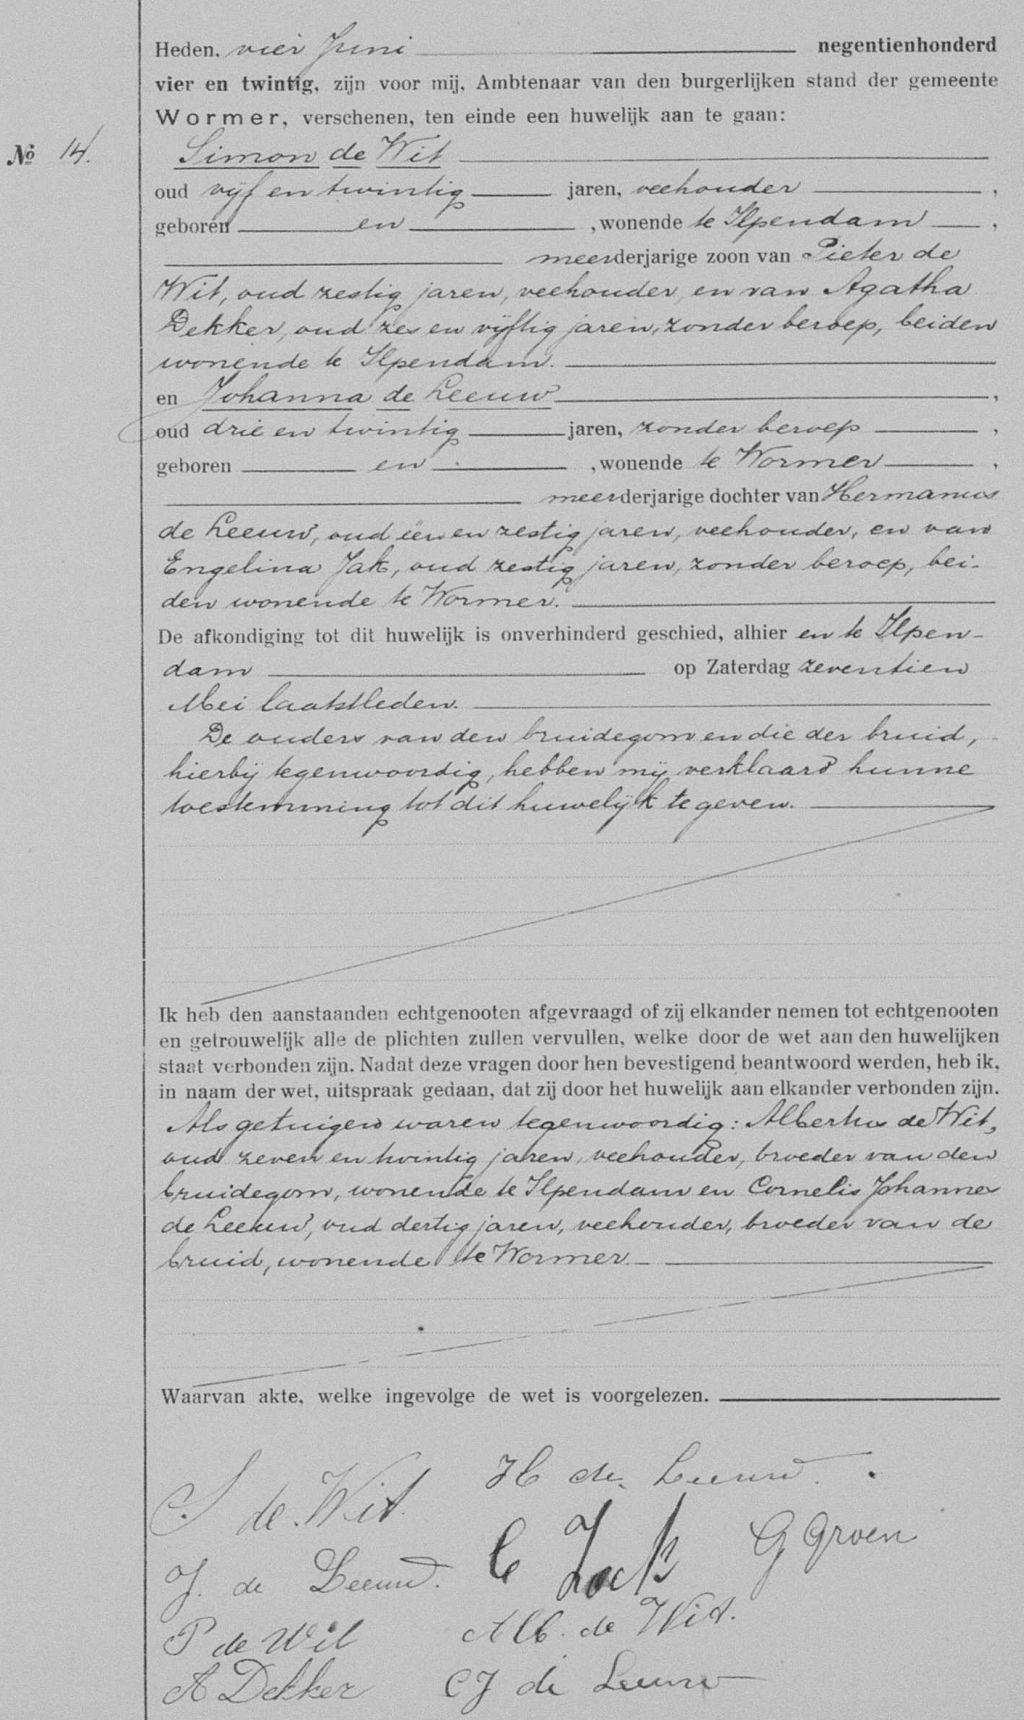 Heden, vier Juni negentienhonderd
vier en twintig, zijn voor mij, Ambtenaar van den burgerlijken stand der gemeente
Wormer, verschenen, ten einde een huwelijk aan te gaan:
№ 14.
Simon de Wit
oud vijf en twintig jaren, veehouder ,
geboren en , wonende te Ilpendam ,
meerderjarige zoon van Pieter de
Wit, oud zestig jaren, veehouder, en van Agatha
Dekker, oud zes en vijftig jaren, zonder beroep, beiden
wonende te Ilpendam.
en Johanna de Leeuw ,
oud drie en twintig jaren, zonder beroep ,
geboren en , wonende te Wormer ,
meerderjarige dochter van Hermanus
de Leeuw, oud één en zestig jaren, veehouder, en van
Engelina Jak, oud zestig jaren, zonder beroep, bei-
den wonende te Wormer.
De afkondiging tot dit huwelijk is onverhinderd geschied, alhier en te Ilpen-
dam op Zaterdag zeventien
Mei laatstleden.
De ouders van den bruidegom en die der bruid,
hierbij tegenwoordig, hebben mij verklaard hunne
toestemming tot dit huwelijk te geven.
Ik heb den aanstaanden echtgenooten afgevraagd of zij elkander nemen tot echtgenooten
en getrouwelijk alle de plichten zullen vervullen, welke door de wet aan den huwelijken
staat verbonden zijn. Nadat deze vragen door hen bevestigend beantwoord werden, heb ik,
in naam der wet, uitspraak gedaan, dat zij door het huwelijk aan elkander verbonden zijn.
Als getuigen waren tegenwoordig: Albertus de Wit,
oud zeven en twintig jaren, veehouder, broeder van den
bruidegom, wonende te Ilpendam en Cornelis Johannes
de Leeuw, oud dertig jaren, veehouder, broeder van de
bruid, wonende te Wormer.
Waarvan akte, welke ingevolge de wet is voorgelezen.
S de Wit. H de Leeuw.
J. de Leeuw. E Jack G Groen
P de Wit Alb. de Wit.
A Dekker CJ de Leeuw